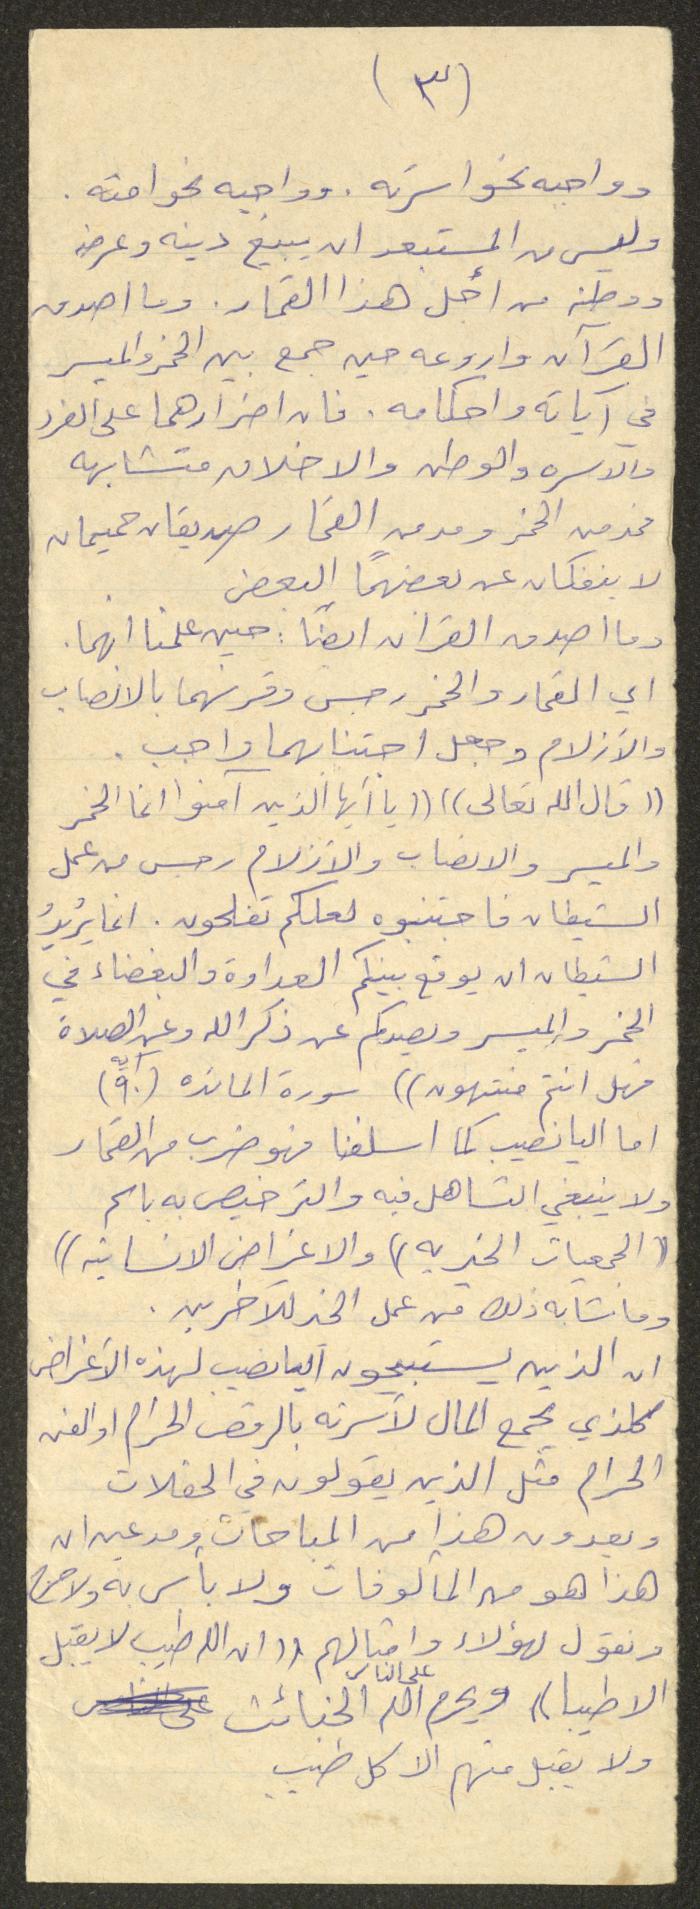 (٣)
وواجبه نحو اسرته . وواجبه نحو امته .
وليس من المستبعد ان يبيع دينه وعرضه
ووطنه من اجل هذا القمار . وما اصدق
القرآن واروعه حين جمع بين الخمر والميسر
في آياته واحكامه . فان اضرارهما على الفرد
والاسره والوطن والاخلاق متشابهه
فمدمن الخمر ومدمن القمار صديقان حميمان
لا ينفكان عن بعضهمًا البعض
وما اصدق القرآن ايضًا : حين علمنا انهما .
اي القمار والخمر رجس وقرنهما بالانصاب
والأزلام وجعل اجتنابهما واجب .
((قال الله تعالى)) ((يا أيها الذين آمنوا انما الخمر
والميسر والانصاب والأزلام رجس من عمل
الشيطان فاجتنبوه لعلكم تفلحون . انما يُريدُ
الشيطان ان يوقع بينكم العداوة والبغضاء في
الخمر والميسر ويصدكم عن ذكر الله وعن الصلاة
فهل انتم منتهون)) سورة المائده (آية ٩٠)
اما اليانصيب كما اسلفنا فهو ضرب من القمار
ولا ينبغي التساهل فيه والترخيص به باسم
((الجمعيات الخيريه)) والاغراض الانسانية))
وما شابه ذلك من عمل الخير للآخرين .
ان الذين يستبيحون اليانصيب لهذه الأغراض
كلذي يجمع المال لأسرته بالرقص الحرام او الفن
الحرام مثل الذين يقولون في الحفلات
ويعدون هذا من المباحات ومدعين ان
هذا هو من المألوفات ولا بأس به ولا حرج
ونقول لهؤلاء وامثالهم ((ان الله طيب لا يقبل
الا طيبا)) ويحرم الله على الناس الخبائث
ولا يقبل منهم الا كل طيب